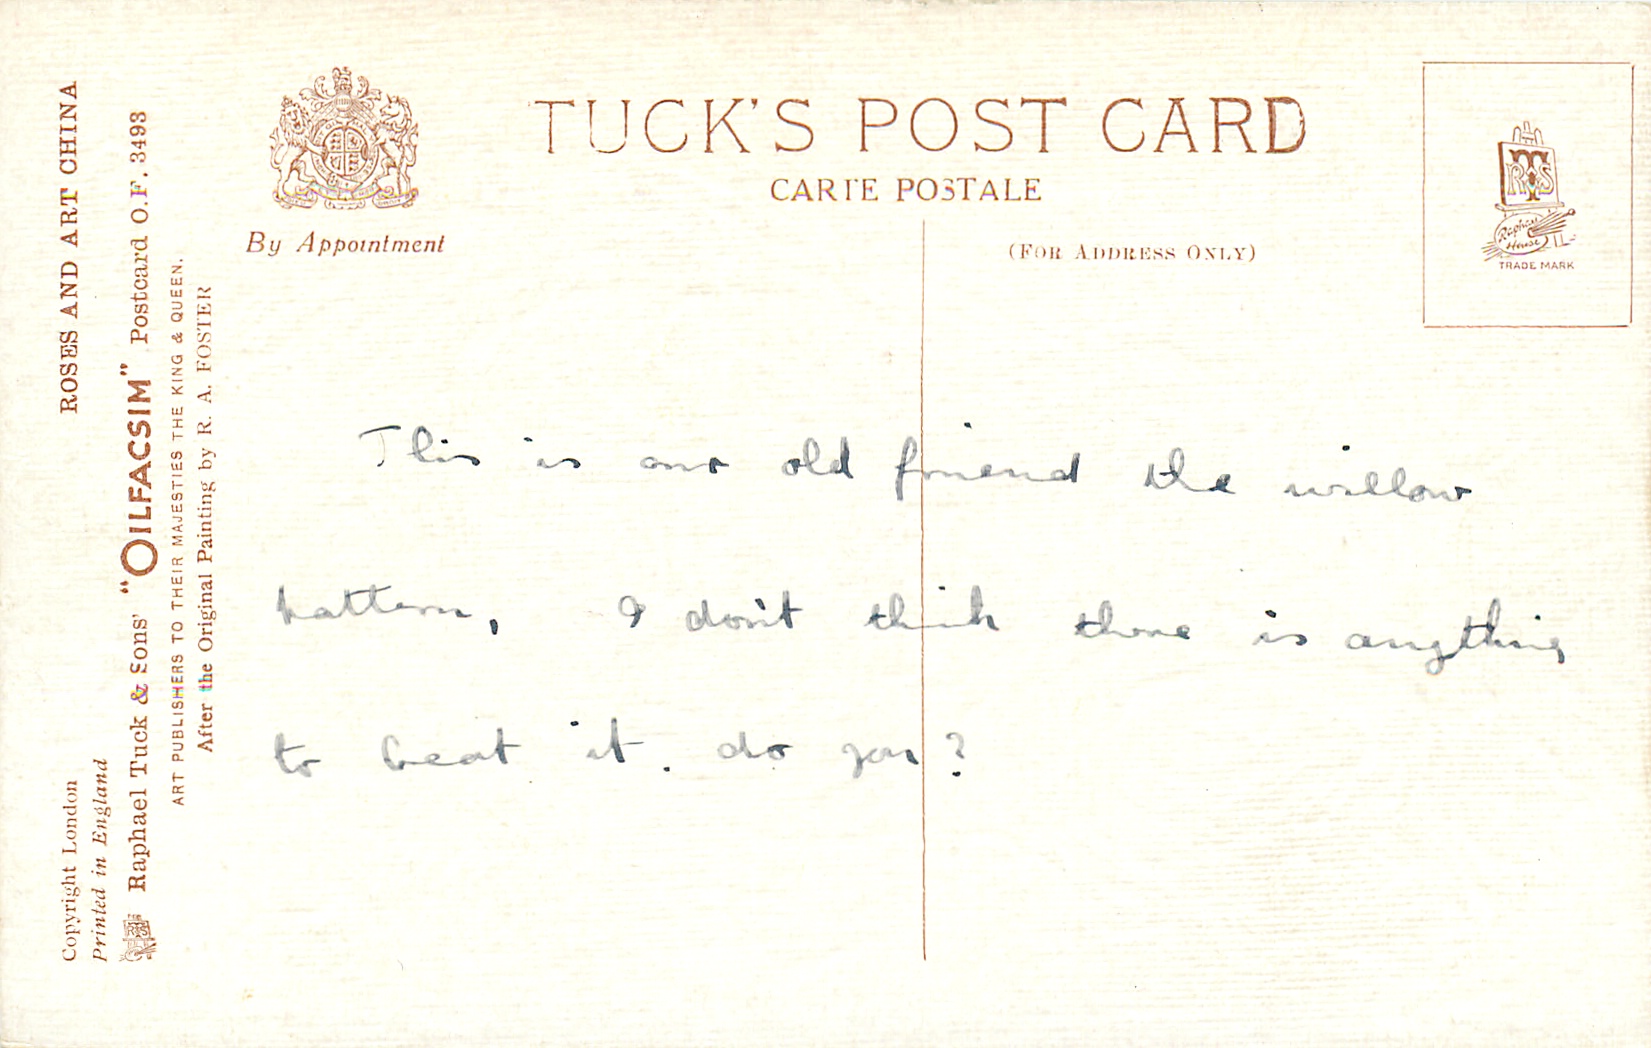 TUCK'S POST CARD
CARTE POSTALE
By Appointment
(FOR ADDRESS ONLY)
RTS
Raphael
House
TRADE MARK
ROSES AND ART CHINA
Copyright London
Printed in England
Raphael Tuck & Sons' "OILFACSIM" Postcard O.F. 3493
ART PUBLISHERS TO THEIR MAJESTIES THE KING & QUEEN.
After the Original Painting by R. A. FOSTER
This is our old friend the willow
pattern, I don't think there is anything
to beat it. do you?